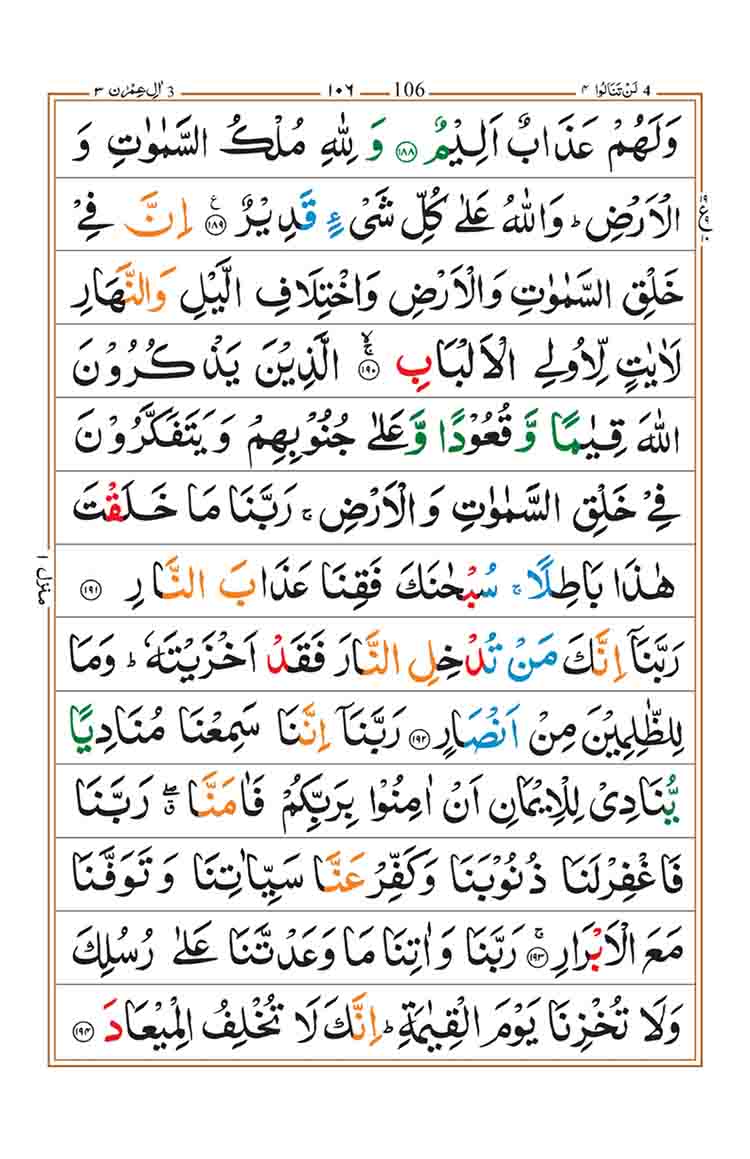 لَنْ تَنَالُوا ۴ 4 106 ۱۰۶ اٰلِ عِمْرٰن ۳ 3
وَلَهُمْ عَذَابٌ اَلِيْمٌ ﴿۱۸۸﴾ وَ لِلّٰهِ مُلْكُ السَّمٰوٰتِ وَ
الْاَرْضِ ؕ وَاللّٰهُ عَلٰى كُلِّ شَىْءٍ قَدِيْرٌ ﴿۱۸۹﴾ اِنَّ فِىْ
خَلْقِ السَّمٰوٰتِ وَالْاَرْضِ وَاخْتِلَافِ الَّيْلِ وَالنَّهَارِ
لَاٰيٰتٍ لِّاُولِى الْاَلْبَابِ ﴿۱۹۰﴾ الَّذِيْنَ يَذْكُرُوْنَ
اللّٰهَ قِيٰمًا وَّ قُعُوْدًا وَّعَلٰى جُنُوْبِهِمْ وَيَتَفَكَّرُوْنَ
فِىْ خَلْقِ السَّمٰوٰتِ وَالْاَرْضِ ۚ رَبَّنَا مَا خَلَقْتَ
هٰذَا بَاطِلًا ۚ سُبْحٰنَكَ فَقِنَا عَذَابَ النَّارِ ﴿۱۹۱﴾
رَبَّنَاۤ اِنَّكَ مَنْ تُدْخِلِ النَّارَ فَقَدْ اَخْزَيْتَهٗ ؕ وَمَا
لِلظّٰلِمِيْنَ مِنْ اَنْصَارٍ ﴿۱۹۲﴾ رَبَّنَاۤ اِنَّنَا سَمِعْنَا مُنَادِيًا
يُّنَادِىْ لِلْاِيْمَانِ اَنْ اٰمِنُوْا بِرَبِّكُمْ فَاٰمَنَّا ۖۗ رَبَّنَا
فَاغْفِرْلَنَا ذُنُوْبَنَا وَكَفِّرْ عَنَّا سَيِّاٰتِنَا وَتَوَفَّنَا
مَعَ الْاَبْرَارِ ﴿۱۹۳﴾ رَبَّنَا وَاٰتِنَا مَا وَعَدْتَّنَا عَلٰى رُسُلِكَ
وَلَا تُخْزِنَا يَوْمَ الْقِيٰمَةِ ؕ اِنَّكَ لَا تُخْلِفُ الْمِيْعَادَ ﴿۱۹۴﴾
منزل ۱